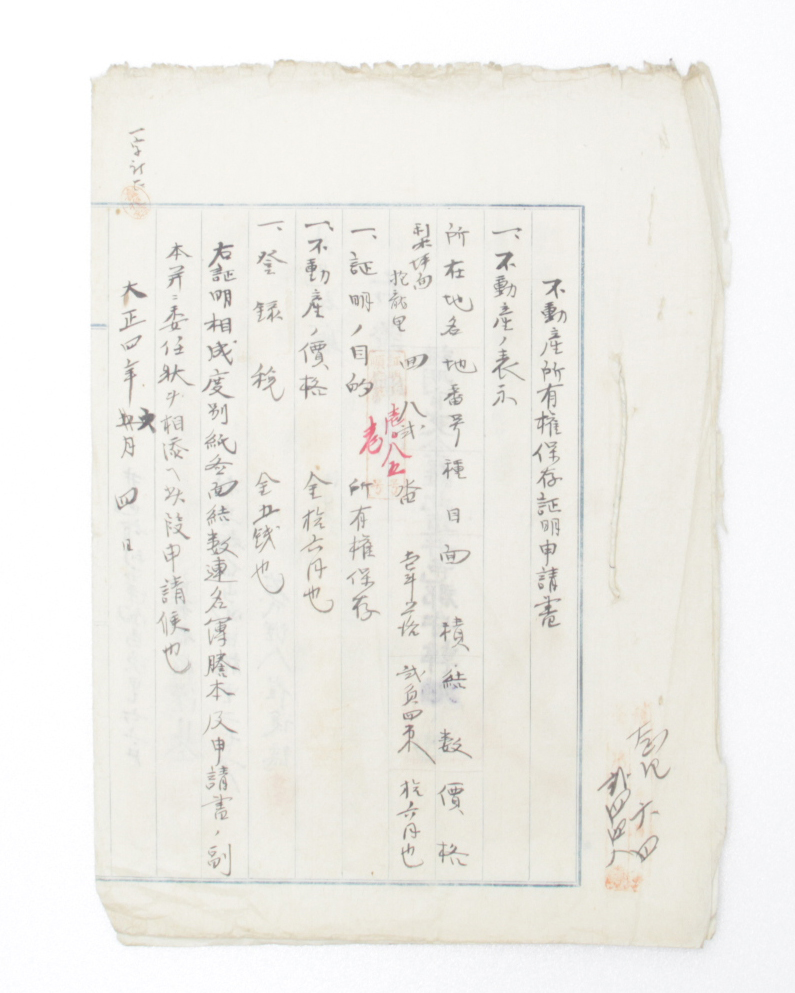 不動産所有権保存証明申請書
一、不動産ノ表示
所在地名地番号種目面積結数価格
梨坪面 四 八弐 畓 弐負四束 拾六円也
一、証明ノ目的 所有権保存
一、不動産ノ價格 金拾六円也
一、登録税 金五銭也
右証明相成度別紙各面結数連名簿謄本及申請書ノ副
本并ニ委任状ヲ相添ヘ此段申請候也
大正四年 六月 四日
一字訂正